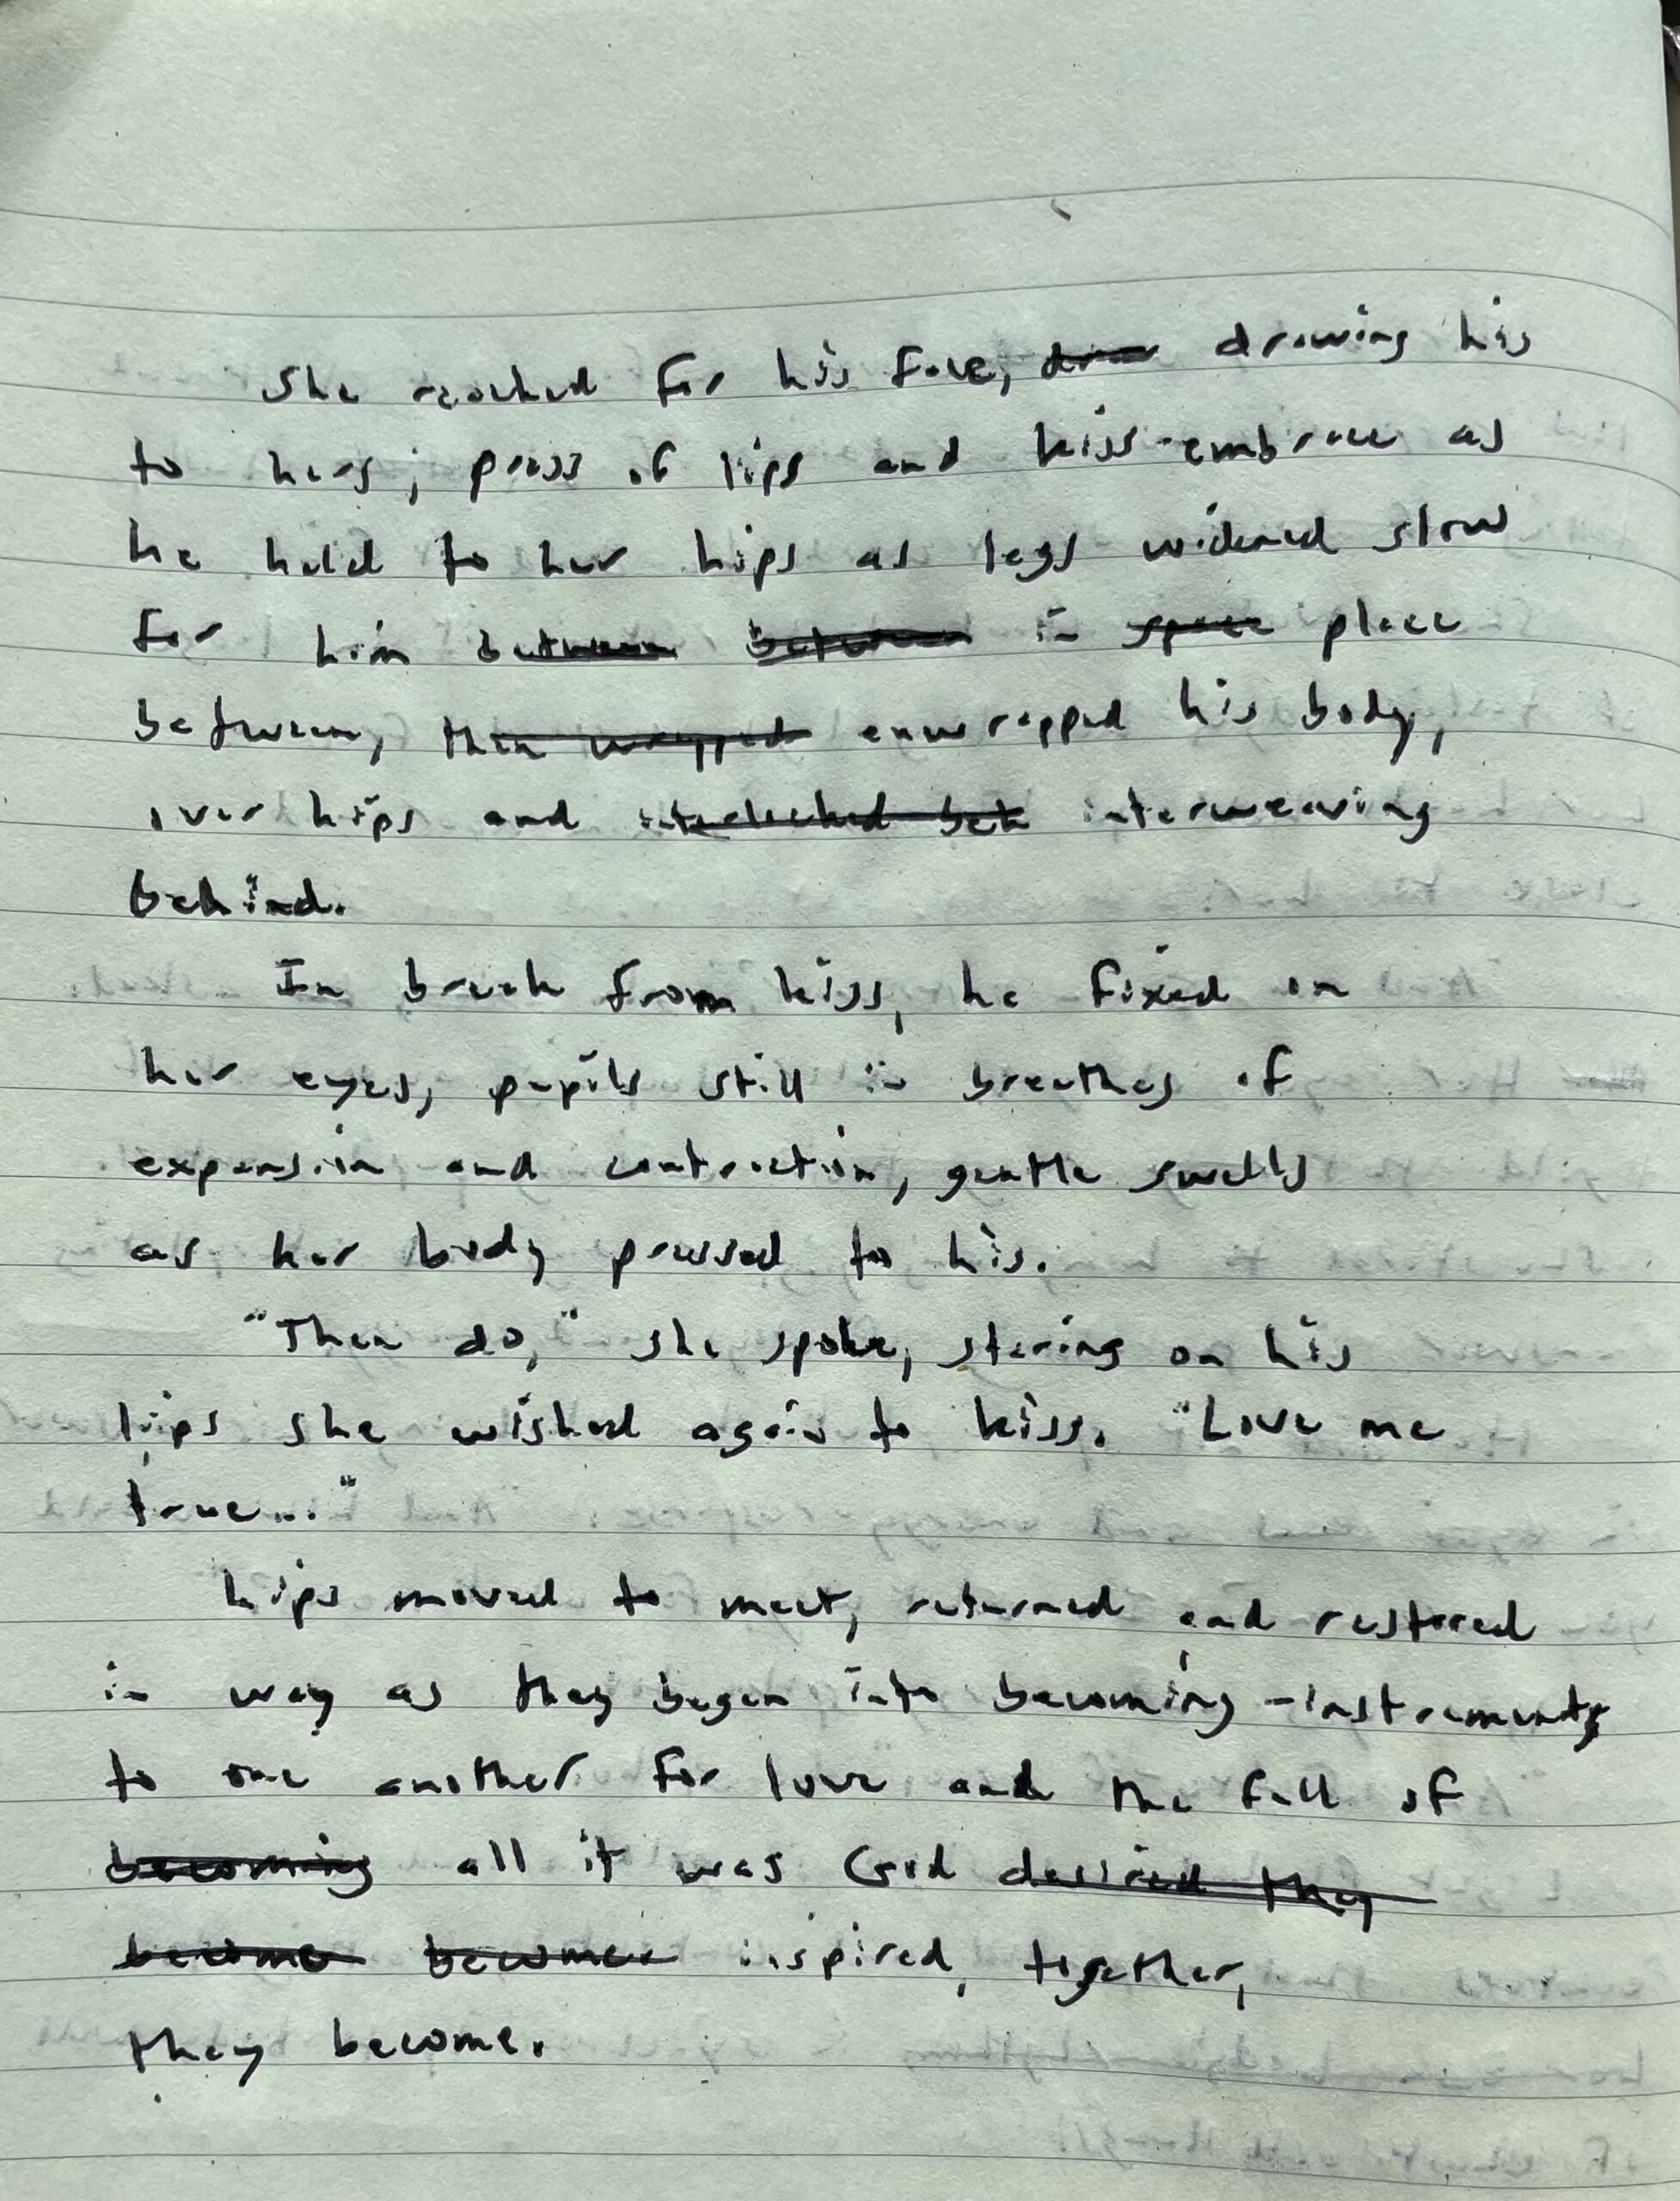 She reached for his face, draw drawing his
to hers; press of lips and kiss-embrace as
he held to her hips as legs widened slow
for him between between in space place
between, then wrapped enwrapped his body,
over hips and interlocked beh interweaving
behind.
In break from kiss, he fixed on
her eyes, pupils still in breathes of
expansion and contraction, gentle swells
as her body pressed to his.
"Then do," she spoke, staring on his
lips she wished again to kiss. "Love me
true..."
hips moved to meet, returned and restored
in way as they began into becoming - instruments
to one another for love and the full of
becoming all it was God desired they
become become inspired, together,
they become.